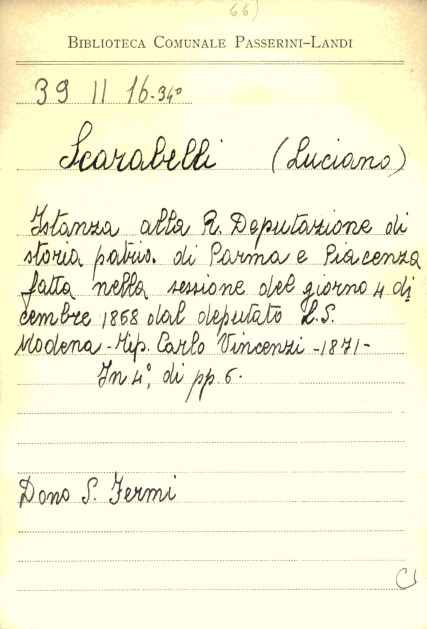 66)
BIBLIOTECA COMUNALE PASSERINI-LANDI
39 II 16-34°
Scarabelli (Luciano)
Istanza alla R. Deputazione di
storia patria. di Parma e Piacenza
fatta nella sessione del giorno 4 di
cembre 1868 dal deputato L.S.
Modena - Tip. Carlo Vincenzi - 1871 -
In 4°, di pp. 6.
Dono S. Fermi